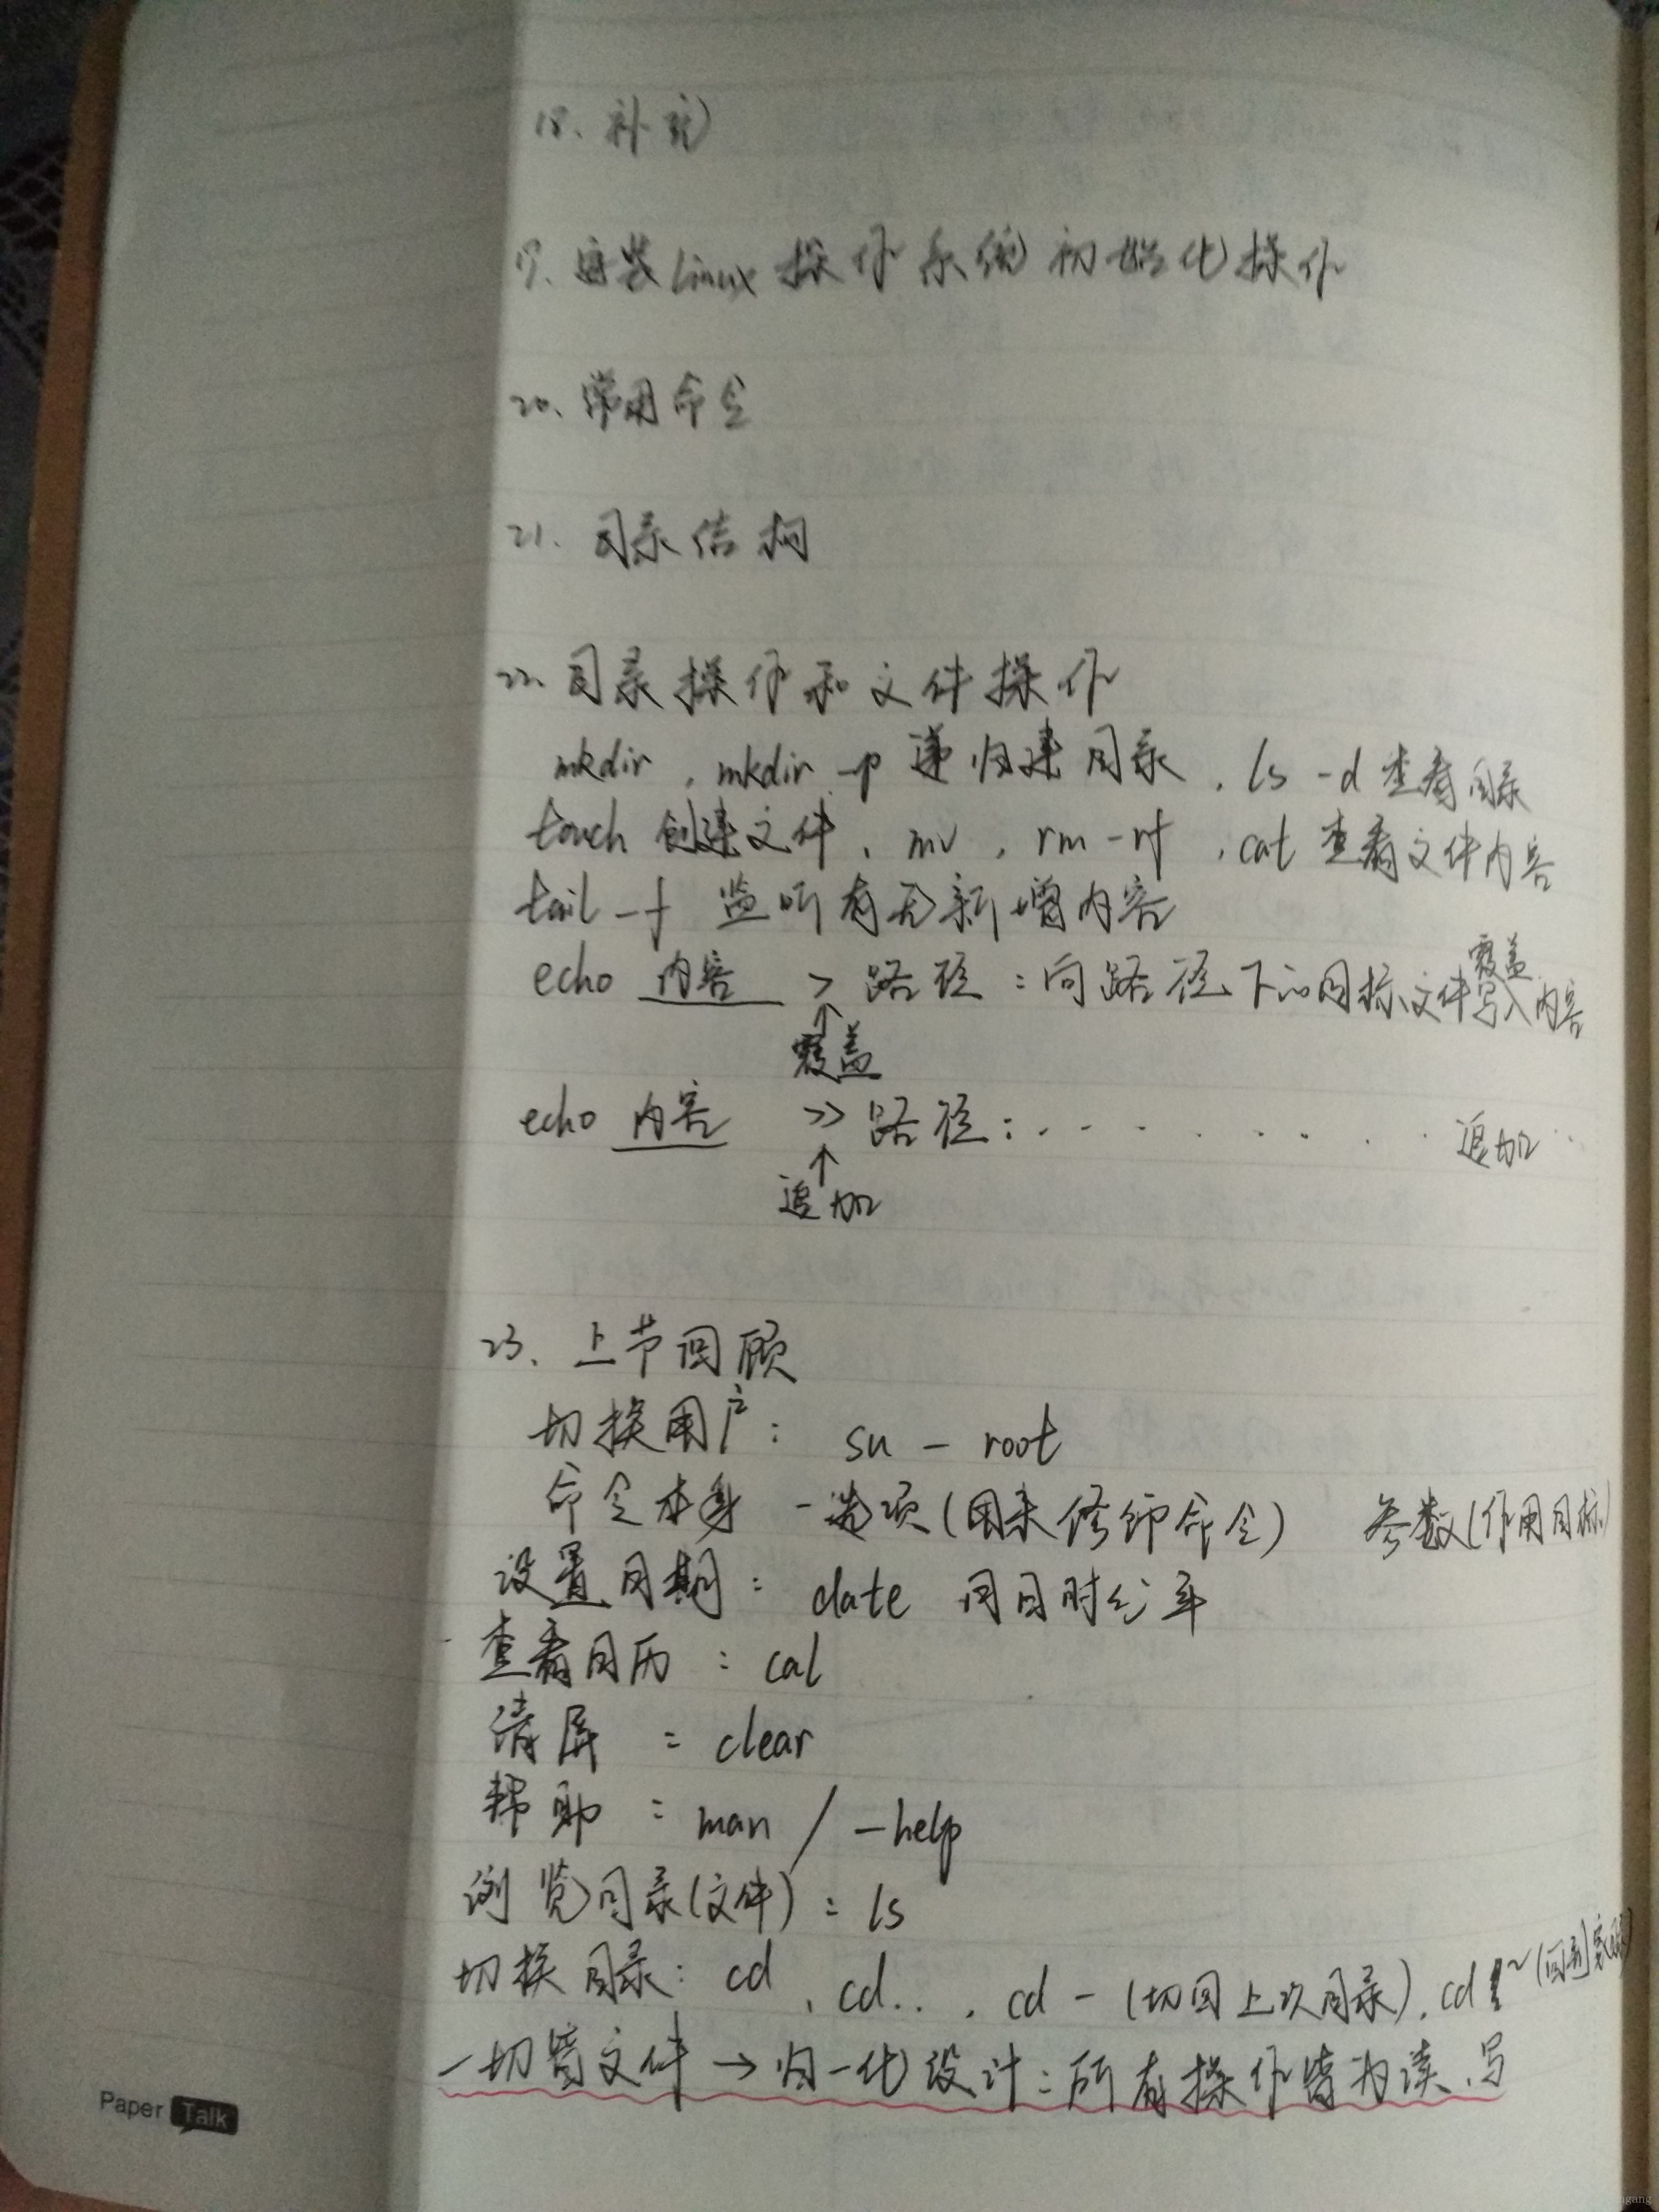 18、补充
19、安装Linux操作系统初始化操作
20、常用命令
21、目录结构
22、目录操作和文件操作
mkdir , mkdir -p 递归建目录 , ls -d 查看目录
touch 创建文件 , mv , rm -rf , cat 查看文件内容
tail -f 监听有无新增内容
echo 内容 > 路径：向路径下的目标文件写入内容
覆盖
↑
覆盖
echo 内容 >> 路径：. . . . . . . . 追加 . .
↑
追加
23、上节回顾
切换用户： su - root
命令本身 -选项(用来修饰命令) 参数(作用目标)
设置日期： date 月日时分年
查看日历 ： cal
清屏 ： clear
帮助 ： man / -help
浏览目录(文件) ： ls
切换目录： cd , cd.. , cd - (切回上次目录), cd ~(回到家目录)
一切皆文件 → 归一化设计：所有操作皆为读、写
Paper Talk